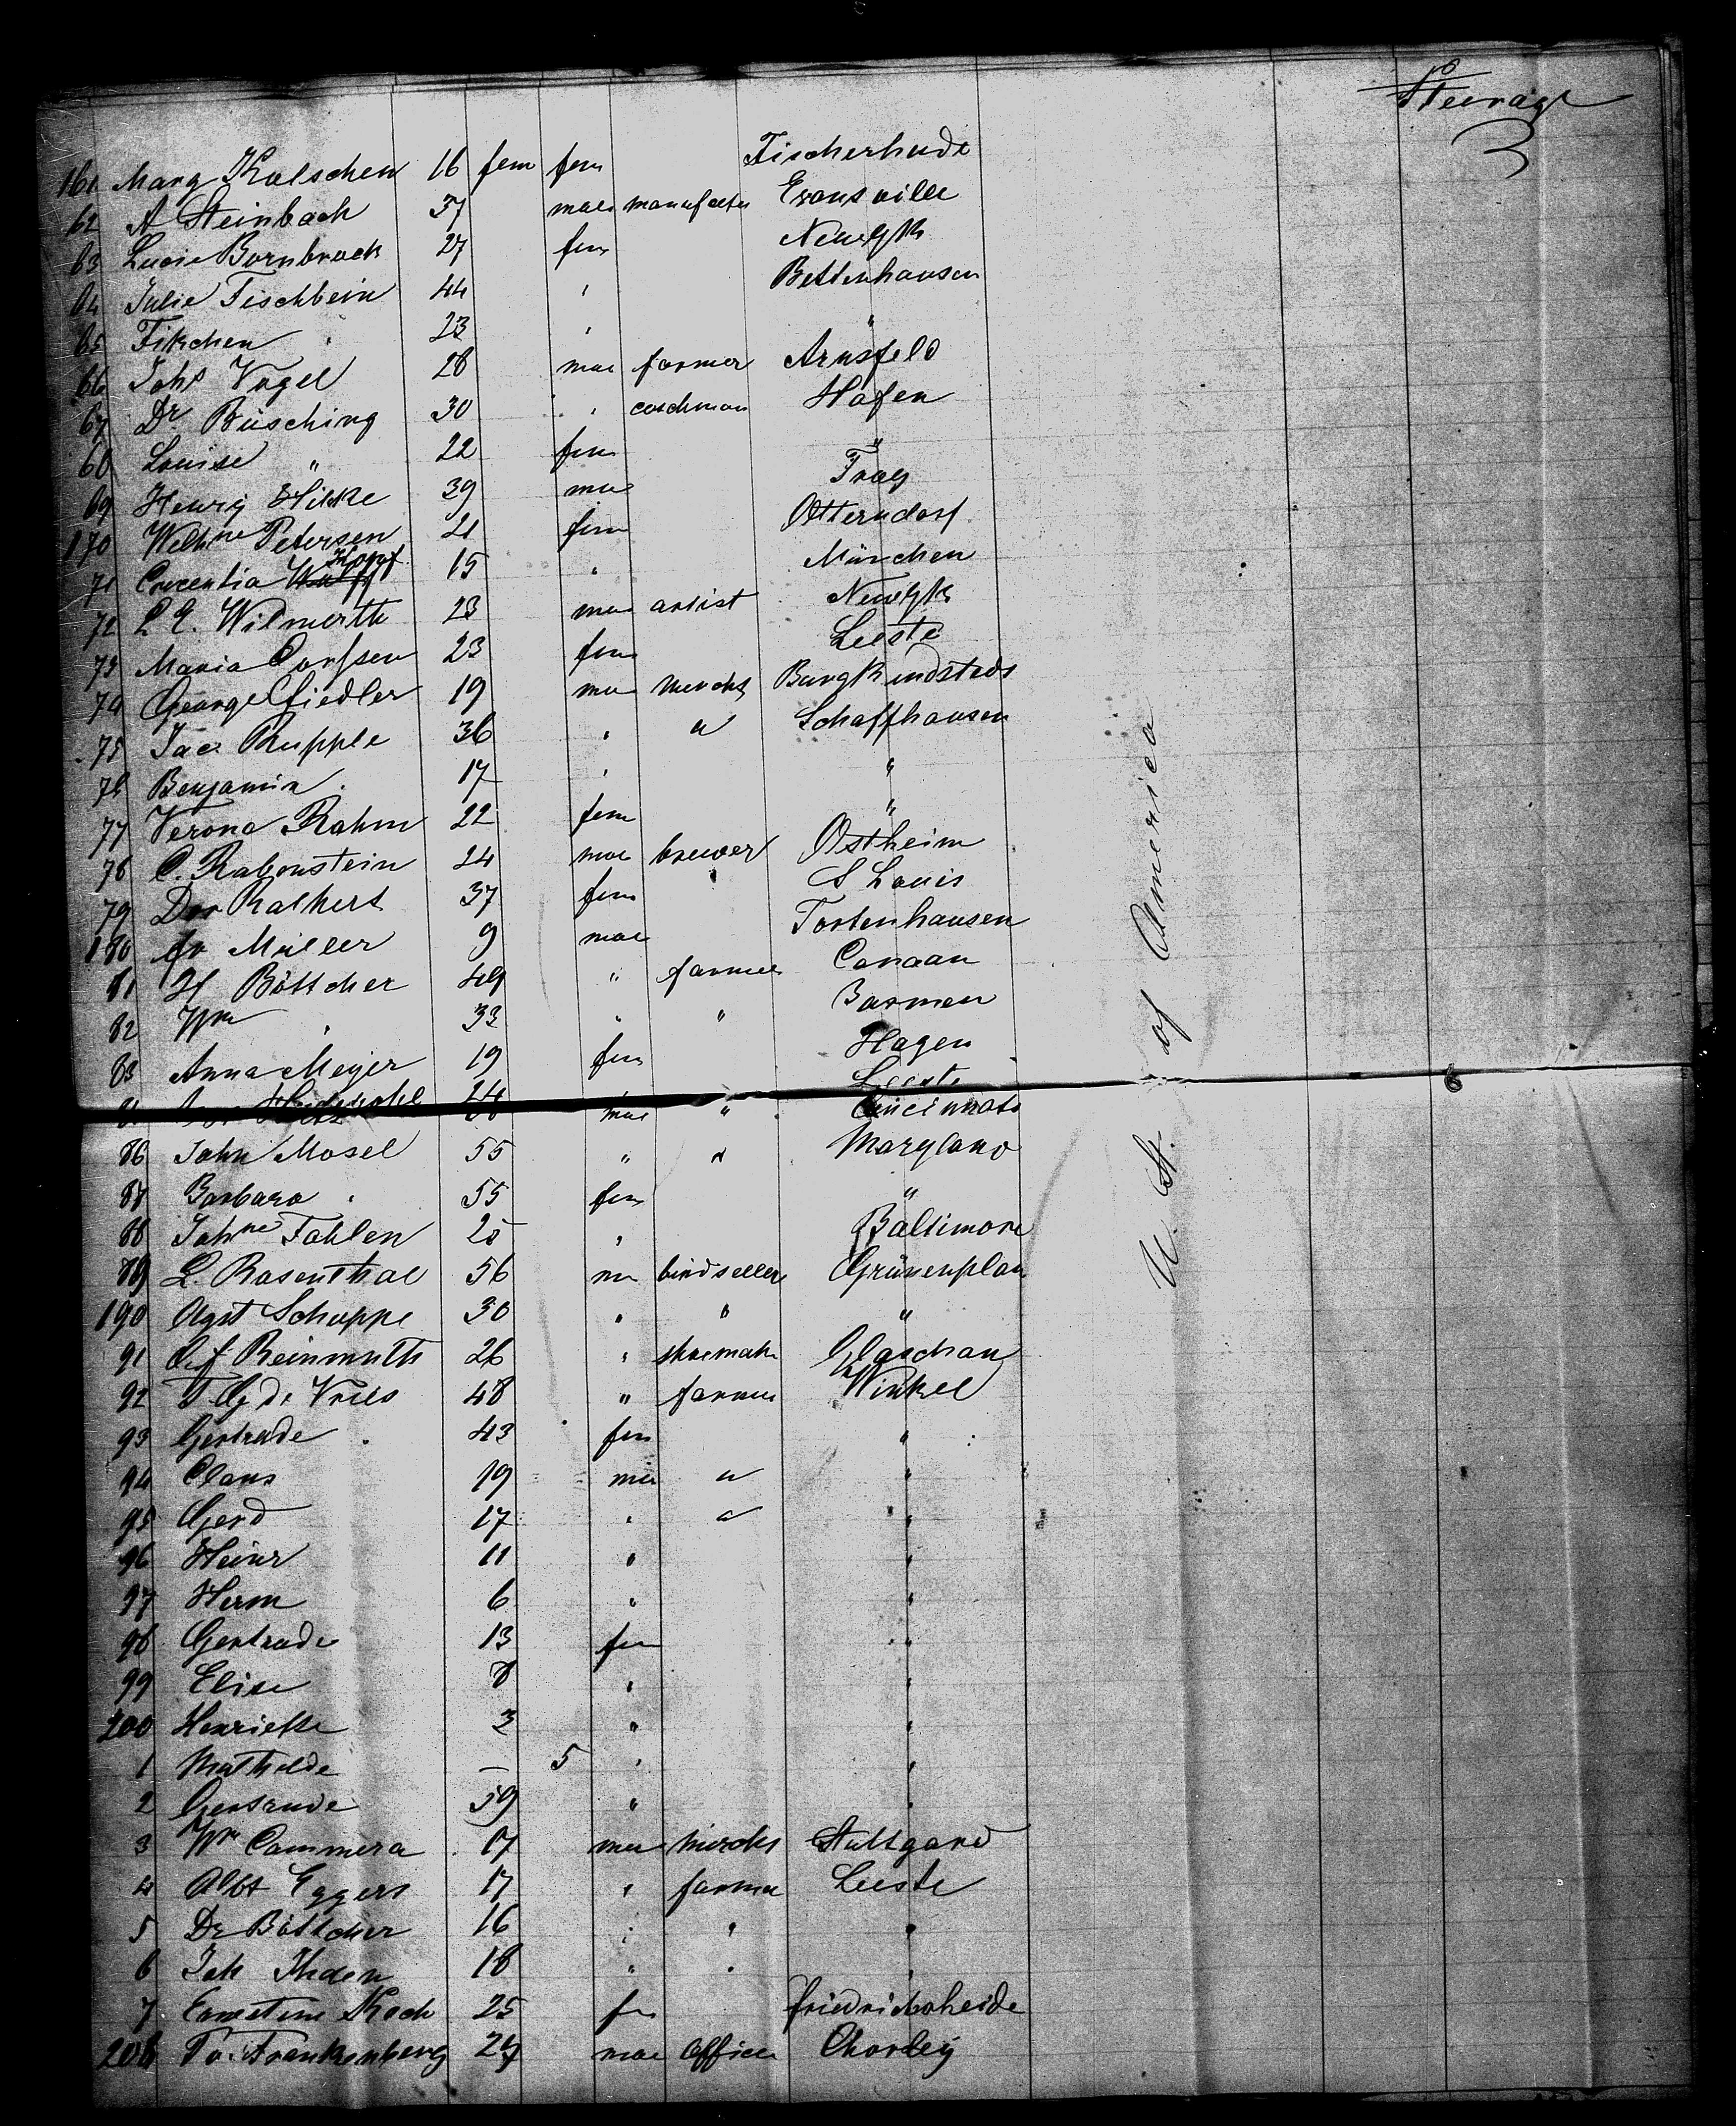 Steerage
161 Marg Kalschen 16 fem fem Fischerhude
62 A Steinbach 37 male manufactur Evansville
63 Lucie Bornbrock 27 fem NewYk
64 Julie Fischbein 44 " Bettenhausen
65 Fikchen " 23 " "
66 Johs Vogel 28 mae farmer Arnsfeld
67 Dr Büsching 30 " coachman Hafen
68 Louise " 22 fem "
69 Henry Hilke 39 mae
170 Welhne Petersen 21 fem Otterndorf
71 Crecentia Hopf 15 " München
72 L E. Wilmerth 23 mae artist NewYk
73 Maria Corssen 23 fem Leeste
74 George Fiedler 19 mae mercht Burgkundstadt
75 Jac Rupple 36 " " Schaffhausen
76 Benjamin " 17 " "
77 Verona Rahm 22 fem "
78 C. Rabenstein 24 mae brewer Ostheim
79 Dor Rathert 37 fem S Louis
180 fr Müller 9 mae Tortenhausen
81 H Böttcher 49 " farmer Canaan
82 Wm " 33 " " Barmen
83 Anna Meyer 19 fem Hagen
Leeste
mae " Cincinnati
86 John Mosel 55 " " Maryland
87 Barbara " 55 fem "
88 Johne Tahlen 25 " Baltimore
89 L. Rosenthal 56 mae birdseller Grünenplan
190 Agst Schuppe 30 " " "
91 Reinmuth 26 " shoemaker Glaschau
92 T. G. de Vries 48 " farmer Winkel
93 Gertrude " 43 fem "
94 Claus 19 mae " "
95 Gerd 17 " " "
96 Heinr 11 " "
97 Herm 6 " "
98 Gertrude 13 fem "
99 Elise 8 " "
200 Henriette 3 " "
1 Mathilde — 5 " "
2 Gertrude 59 " "
3 Wm Cammera 17 mae mercht Stuttgard
4 Albt Eggers 17 " farmer Leeste
5 Dr Böttcher 16 " " "
6 Joh 18 " " "
7 Ernestine Koch 25 fe Friedrichsheide
208 Frankenberg 24 mae officer Chorley
U. St. of America